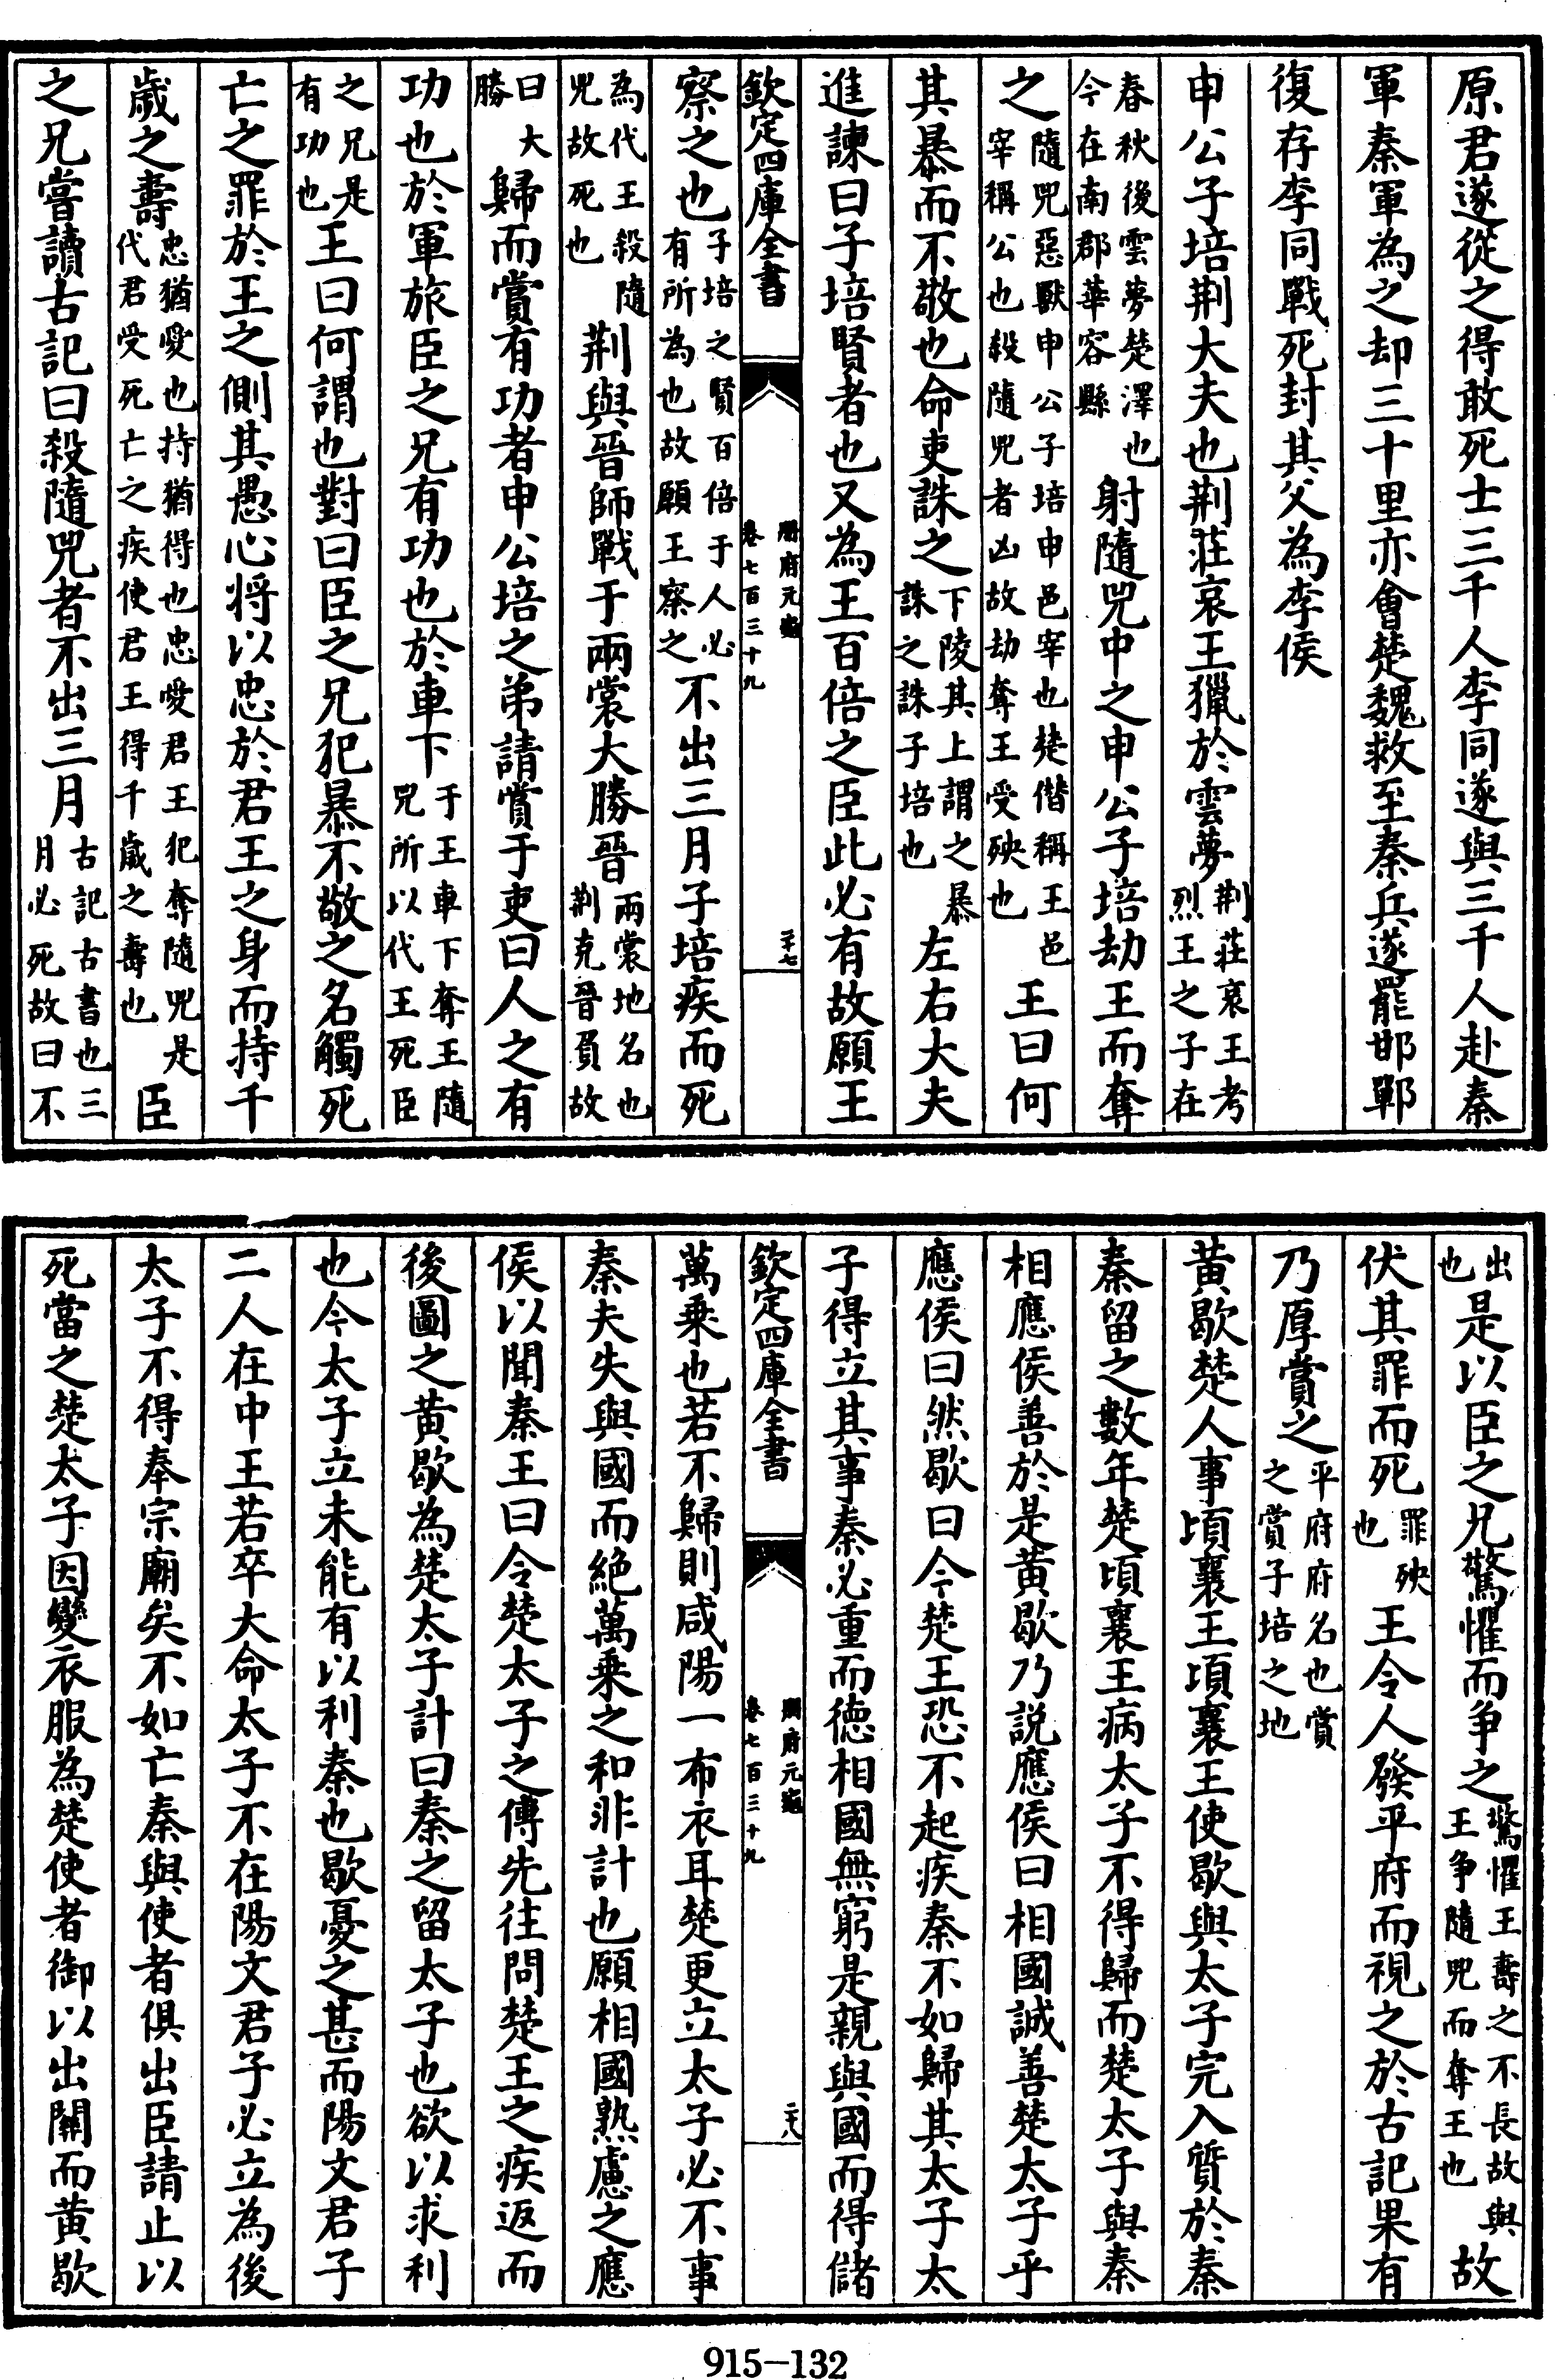 原君遂從之得敢死士三千人李同遂與三千人赴秦
軍秦軍為之却三十里亦會楚魏救至秦兵遂罷邯鄲
復存李同戰死封其父為李侯
申公子培荆大夫也荆莊哀王獵於雲夢荆莊哀王考烈王之子在
春秋後雲夢楚澤也今在南郡華容縣射隨兕中之申公子培劫王而奪
之隨兕惡獸申公子培申邑宰也楚僭稱王邑宰稱公也殺隨兕者凶故劫奪王受殃也王曰何
其暴而不敬也命吏誅之下陵其上謂之暴誅之誅子培也左右大夫
進諫曰子培賢者也又為王百倍之臣此必有故願王
欽定四庫全書
冊府元龜
卷七百三十九
二十七
察之也子培之賢百倍于人必有所為也故願王察之不出三月子培疾而死
為代王殺隨兕故死也荆與晉師戰于兩裳大勝晉兩裳地名也荆克晉負故
曰大勝歸而賞有功者申公培之弟請賞于吏曰人之有
功也於軍旅臣之兄有功也於車下于王車下奪王隨兕所以代王死臣
之兄是有功也王曰何謂也對曰臣之兄犯暴不敬之名觸死
亡之罪於王之側其愚心将以忠於君王之身而持千
歲之壽忠猶愛也持猶得也忠愛君王犯奪隨兕是代君受死亡之疾使君王得千歲之壽也臣
之兄嘗讀古記曰殺隨兕者不出三月古記古書也三月必死故曰不
出也是以臣之兄驚懼而争之驚懼王壽之不長故與王争隨兕而奪王也故
伏其罪而死罪殃也王令人發平府而視之於古記果有
乃厚賞之平府府名也賞之賞子培之地
黄歇楚人事頃襄王頃襄王使歇與太子完入質於秦
秦留之數年楚頃襄王病太子不得歸而楚太子與秦
相應侯善於是黄歇乃説應侯曰相國誠善楚太子乎
應侯曰然歇曰今楚王恐不起疾秦不如歸其太子太
子得立其事秦必重而徳相國無窮是親與國而得儲
欽定四庫全書
冊府元龜
卷七百三十九
二十八
萬乗也若不歸則咸陽一布衣耳楚更立太子必不事
秦夫失與國而絶萬乗之和非計也願相國熟慮之應
侯以聞秦王曰令楚太子之傳先往問楚王之疾返而
後圖之黄歇為楚太子計曰秦之留太子也欲以求利
也今太子立未能有以利秦也歇憂之甚而陽文君子
二人在中王若卒大命太子不在陽文君子必立為後
太子不得奉宗廟矣不如亡秦與使者俱出臣請止以
死當之楚太子因變衣服為楚使者御以出關而黄歇
915-132